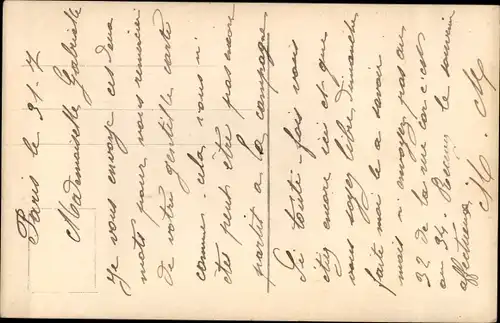 Paris le 31. 7
Mademoiselle Gabrielle
Je vous envoye ces deux
mots pour vous remercier
de votre gentille carte
comme cela vous n'
êtes peut être pas encore
partit a la campagne
Si toute-fois vous
étiez encore ici et que
vous soyez libre dimanche
faite moi le a savoir
mais n'envoyez pas au
32 de la rue car c'est
au 34. Recevez le souvenir
affectueux M. M.